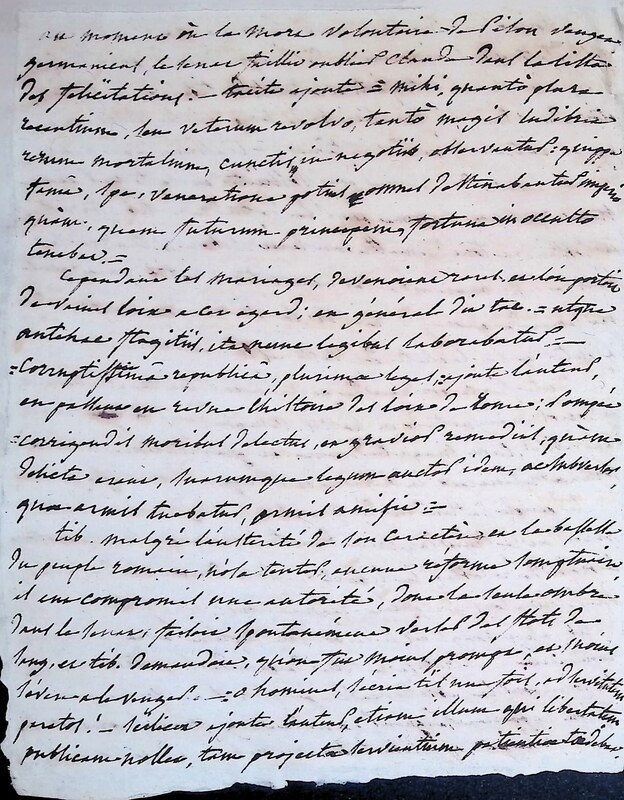 au moment où la mort volontaire de Pison vengea
germanicus, le senat faillit oublier Claude dans la liste
des félicitations. – tacite ajoute = mihi, quantò plura
recentium, seu veterum revolvo, tantò magis ludibria
rerum mortalium, cunctis in negotiis, observantur: quippe
famâ, spe, veneratione potius omnes destinabantur imperio
quàm, quem futurum principem fortuna in occulto
tenebat. =
Cependant les mariages, devenoient rares, et l'on portoit
de vaines loix a cet égard; en général dit tac. = utque
antehac flagitiis, ita nunc legibus laborabatur. =
= corruptissimâ republicâ, plurimæ leges, = ajoute l'auteur,
en passant en revue l'histoire des loix de Rome; Pompée
= corrigendis moribus delectus, et gravior remediis, quàm
delicta erant, suarumque legum auctor idem, ac subversor,
quæ armis tuebatur, armis amisit =
tib. malgré l'austérité de son caractère et la bassesse
du peuple romain, n'osa tenter, aucune réforme somptuaire
il eut compromis une autorité, dont la seule ombre
dans le senat, faisoit spontanément verser des flots de
sang, et tib. demandoit, qu'on fut moins prompt, et moins
sévère a le venger. – o homines, s'écria t'il une fois, ad servitutem
paratos! – scilicet ajoute l'auteur, etiam illum qui libertatem
publicam nollet, tam projectæ servientium patientiæ tædebat.